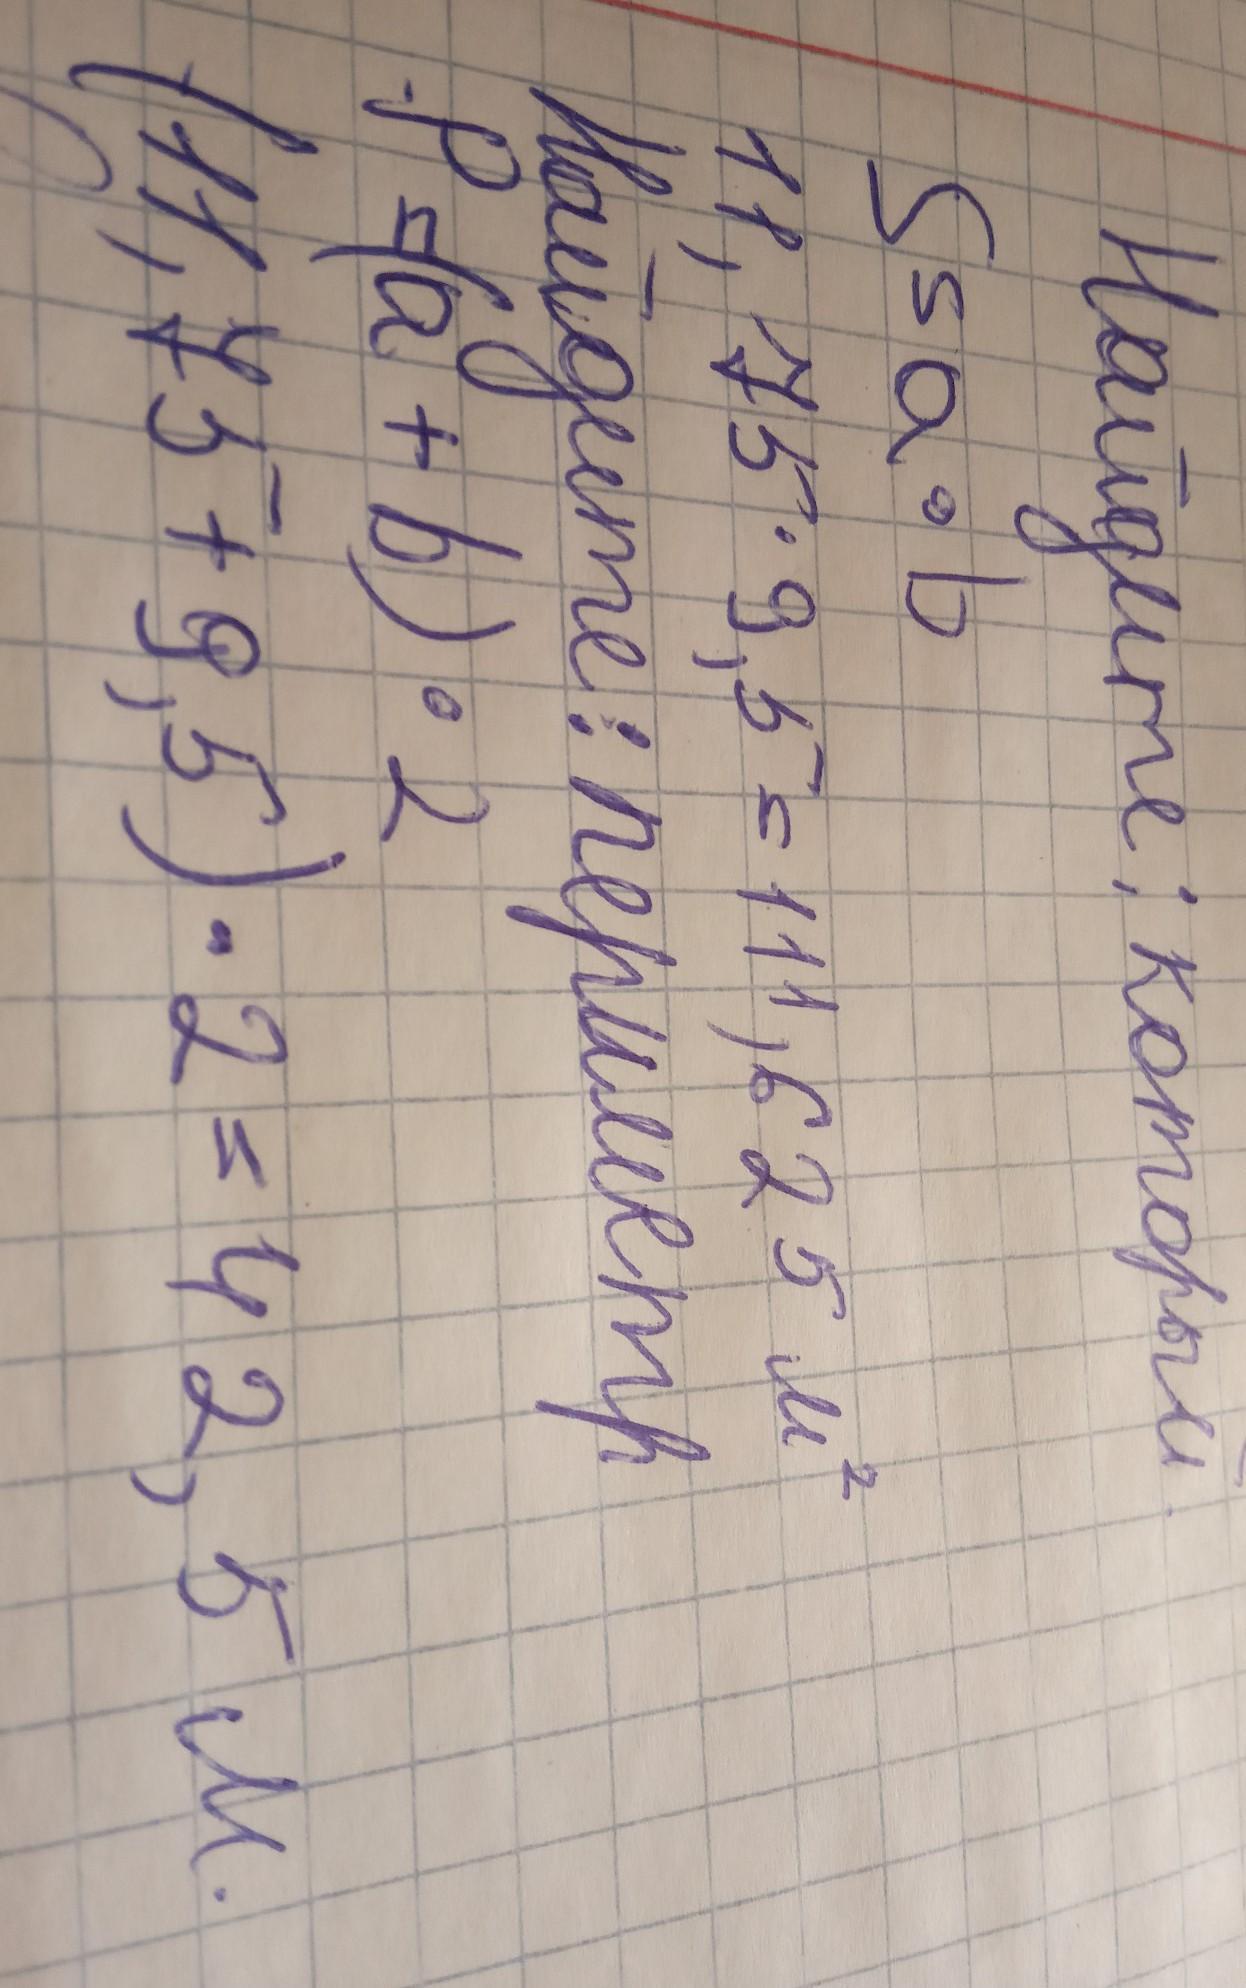 Найдите: который
S = a · b
11,75 · 9,5 = 111,625 м²
Найдите: периметр
P = (a + b) · 2
(11,75 + 9,5) · 2 = 42,5 м.